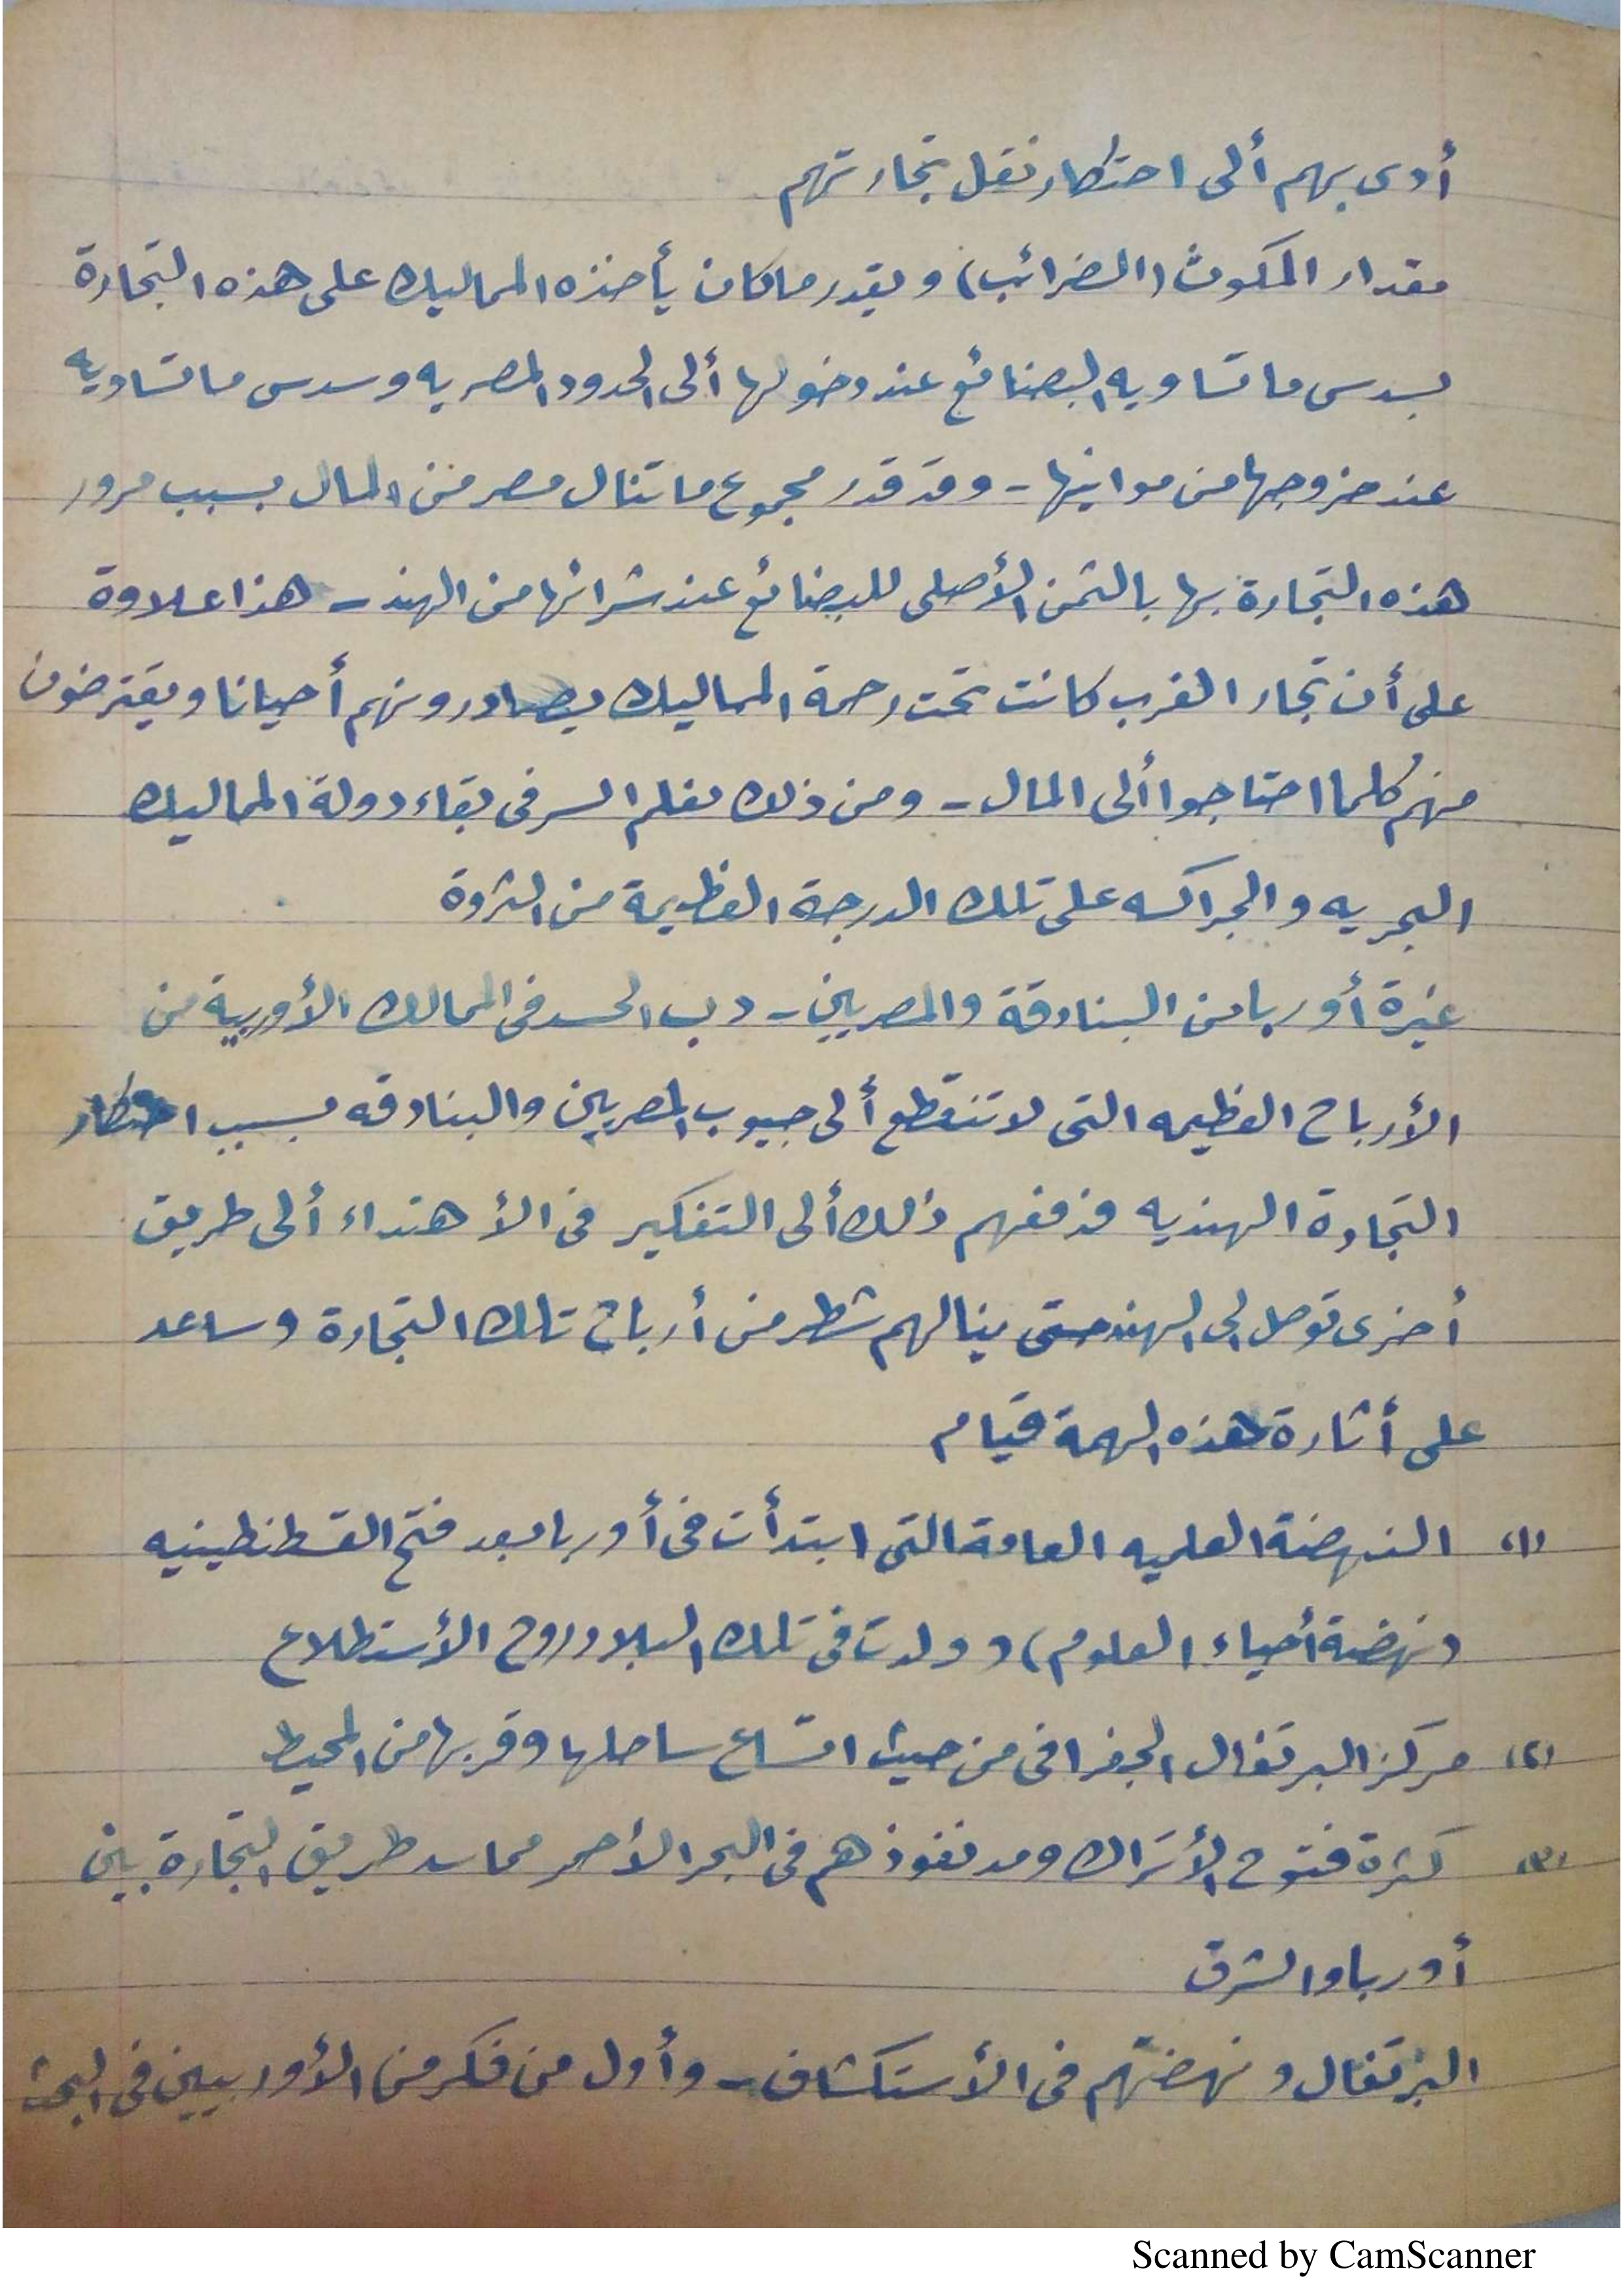 أدى بهم ألى احتكار نقل تجارتهم
مقدار المكوث (الضرائب) ويقدر ما كان يأخذه المماليك على هذه التجارة
بسدس ما تساويه البضائع عند دخولها ألى الحدود المصريه وسدس ما تساويه
عند خروجها من موانيها - وقد قدر مجموع ما تنال مصر من المال بسبب مرور
هذه التجارة بها بالثمن الأصلى للبضائع عند شرائها من الهند - هذا علاوة
على أن تجار الغرب كانت تحت رحمة المماليك يصادرونهم أحيانا ويقترضون
منهم كلما احتاجوا ألى المال - ومن ذلك نعلم السر فى بقاء دولة المماليك
البحريه والجراكسه على تلك الدرجة العظيمة من الثروة
غيرة أوربا من البنادقة والمصريين - دب الحسد فى الممالك الأوربية من
الأرباح العظيمه التى لا تنقطع ألى جيوب المصريين والبنادقه بسبب احتكار
التجارة الهنديه فدفعهم ذلك ألى التفكير فى الأهتداء ألى طريق
أخرى توصل الى الهند حتى ينالهم شطر من أرباح تلك التجارة وساعد
على أثارة هذه الهمة قيام
(١) النهضة العلميه العامة التى ابتدأت فى أوربا بعد فتح القسطنطينيه
(نهضة أحياء العلوم) وولدت فى تلك البلاد روح الأستطلاع
(٢) مركز البرتغال الجغرافى من حيث اتساع ساحلها وقربها من المحيط
(٣) كثرة فتوح الأتراك ومد نفوذهم فى البحر الأحمر مما سد طريق التجارة بين
أوربا والشرق
البرتغال ونهضتهم فى الأستكشاف - وأول من فكر من الأوربيين فى البحث
Scanned by CamScanner